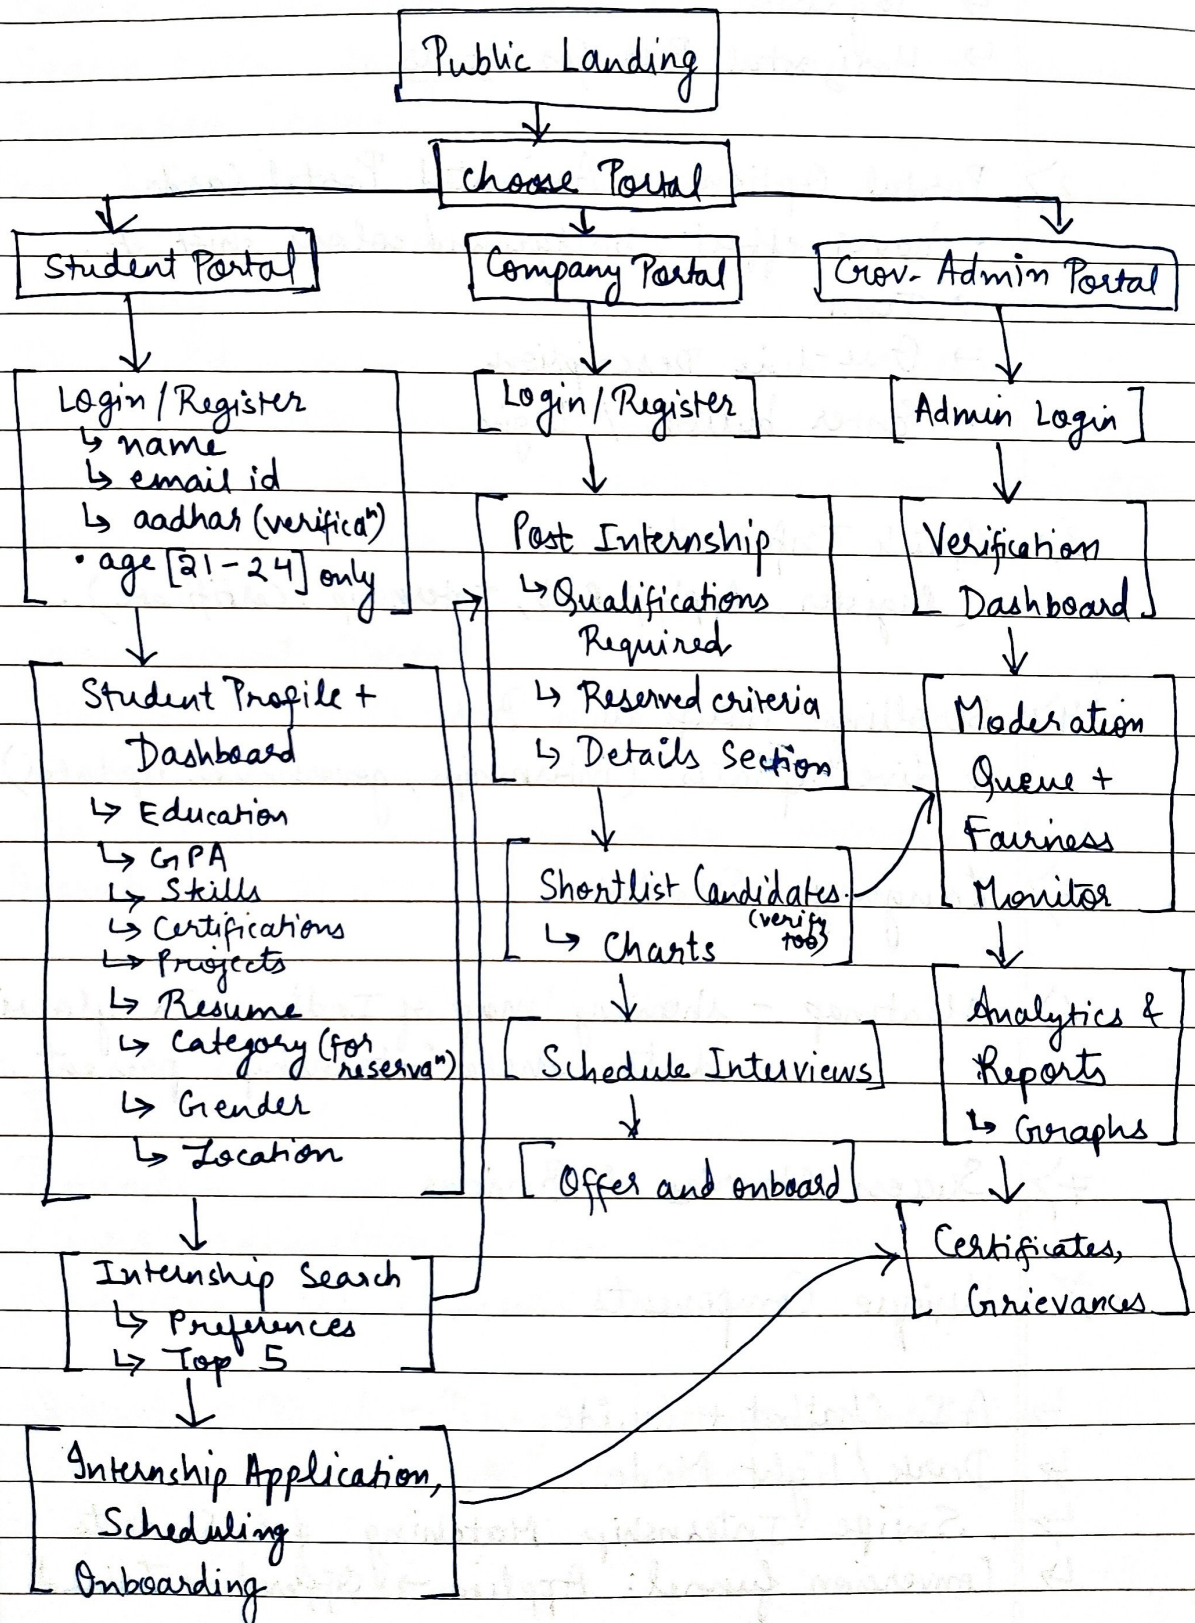 Public Landing
Choose Portal
Student Portal
Company Portal
Gov. Admin Portal
Login/Register
↳ name
↳ email id
↳ aadhar (verificaⁿ)
• age [21-24] only
Student Profile +
Dashboard
↳ Education
↳ GPA
↳ Skills
↳ Certifications
↳ Projects
↳ Resume
↳ Category (for
reservaⁿ)
↳ Gender
↳ Location
Internship Search
↳ Preferences
↳ Top 5
Internship Application,
Scheduling
Onboarding
Login/Register
Post Internship
↳ Qualifications
Required
↳ Reserved criteria
↳ Details Section
Shortlist Candidates
(verify
too)
↳ Charts
Schedule Interviews
Offer and onboard
Admin Login
Verification
Dashboard
Moderation
Queue +
Fairness
Monitor
Analytics &
Reports
↳ Graphs
Certificates,
Grievances